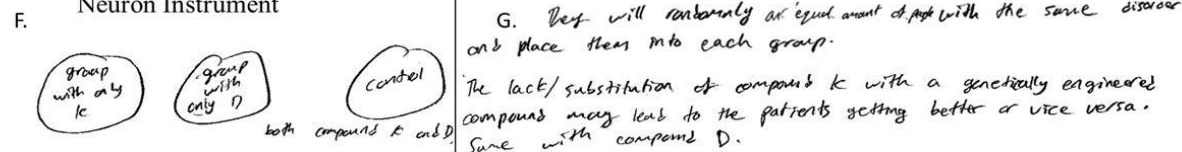 Neuron Instrument
F.
group
with only
K
group
with
only D
control
both compound K and D
G. They will randomly an equal amount of people with the same disorder
and place them into each group.
The lack/substitution of compound K with a genetically engineered
compound may lead to the patients getting better or vice versa.
Same with compound D.